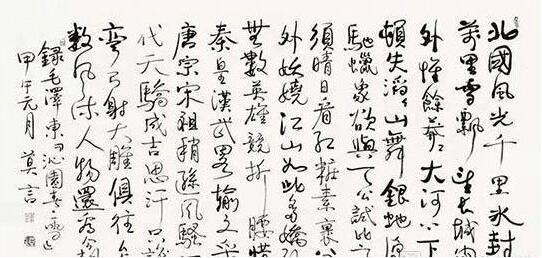 北國風光千里冰封
萬里雪飄望長城內
外惟餘莽々大河上下
頓失滔々山舞銀蛇原
馳蠟象欲與天公試比
須晴日看紅粧素裹分
外妖嬈江山如此多嬌
無數英雄競折腰惜
秦皇漢武略輸文采
唐宗宋祖稍遜風騷
代天驕成吉思汗只識
彎弓射大雕俱往矣
數風流人物還看今朝
錄毛澤東詞沁園春雪
甲午元月 莫言